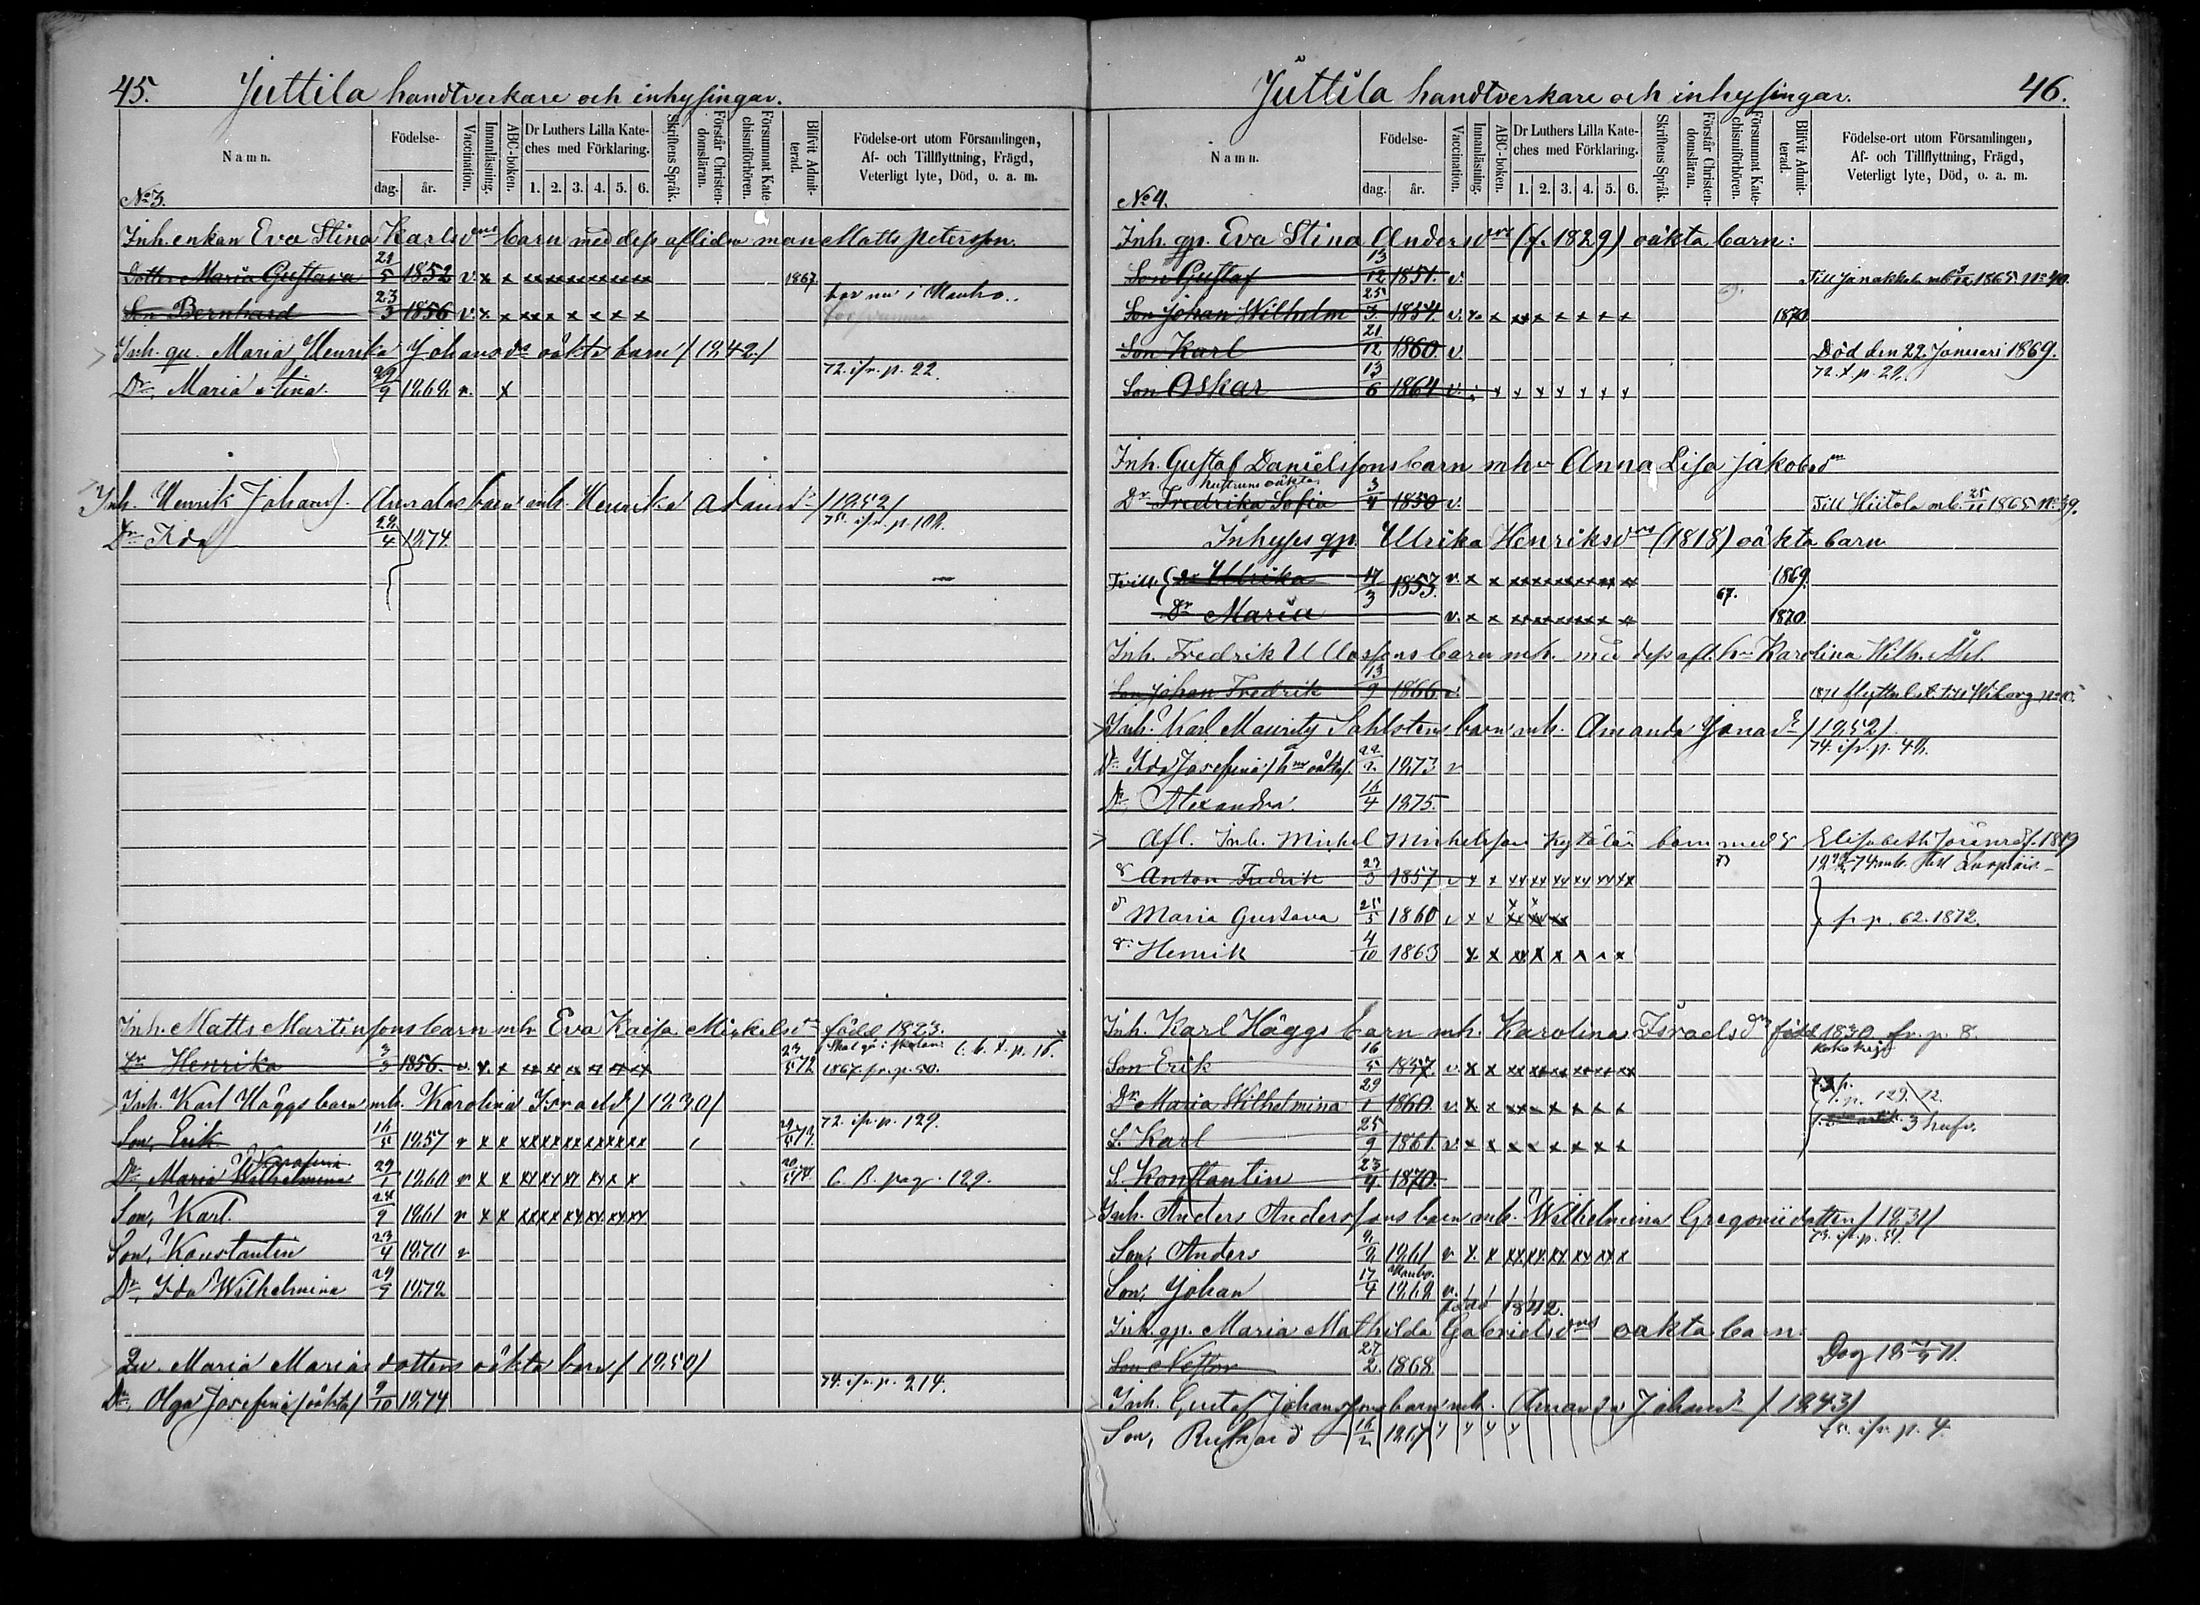 45. Juttila handtverkare och inhysingar.
Namn. Födelse- dag. år. Vaccination. Innanläsning. ABC-boken. Dr Luthers Lilla Kateches med Förklaring. 1. 2. 3. 4. 5. 6. Skriftens Språk. Förstår Christendomsläran. Försummat Katechismiförhören. Blifvit Admitterad. Födelse-ort utom Församlingen, Af- och Tillflyttning, Frägd, Veterligt lyte, Död, o. a. m.
No 3.
Inh. enkan Eva Stina Karlsdrs barn med dess aflidne man Matts Petersson.
Dotter Maria Gustava 21/5 1852 v. x x xx xx xx xx xx xx 1867
Son Bernhard 23/3 1856 v. x x xx x x x x x bor nu i
Inh. qv. Maria Henrika Johansdrs oäkta barn /1842/
Dr, Maria Stina. 29/9 1869 v. x 72. ifr. p. 22.
Inh. Henrik Johanss. barn mh. Henrika Adamsdr /1852/
Dr Ida 1874 75. ifr. p. 102.
Inh. Matts Martinssons barn mh. Eva Kaisa Mickelsdr född 1823.
Dr Henrika 3/3 1856. v. x x xx xx xx xx xx xx 23/5 72 Skal gå i skolan 1867. fr. p. 50. C. b. t. p. 16.
Inh. Karl Häggs barn mh. Karolina Israelsdr /1830/
Son, Erik 16/5 1857 v x x xx xx xx xx xx xx 72. ifr. p. 129.
Dr, Maria Wilhelmina 29/1 1860 v x x xx xx xx xx x x C. B. pag. 129.
Son, Karl. 1861 v x x xx xx xx xx xx xx
Son, Konstantin 23/4 1870 v
Dr, Ida Wilhelmina 1872
Qv. Maria Mariasdotters oäkta barn /1850/
Dr, Olga Josefina /oäkta/ 9/10 1874 74. ifr. p. 214.
Juttila handtverkare och inhysingar. 46.
Namn. Födelse- dag. år. Vaccination. Innanläsning. ABC-boken. Dr Luthers Lilla Kateches med Förklaring. 1. 2. 3. 4. 5. 6. Skriftens Språk. Förstår Christendomsläran. Försummat Katechismiförhören. Blifvit Admitterad. Födelse-ort utom Församlingen, Af- och Tillflyttning, Frägd, Veterligt lyte, Död, o. a. m.
No 4.
Inh. qp. Eva Stina Andersdrs (f. 1829) oäkta barn:
Son Gustaf 13/12 1851. v. Till Janakkala 1865. No 40.
Son Johan Wilhelm 25/3 1854. v. x. x xx x x x x x 69. 1870
Son Karl 21/12 1860. v Död den 22 Januari 1869.
Son Oskar 13/6 1864 v. 72. t. p. 29.
Inh. Gustaf Danielssons barn mhu Anna Lisa Jakobsdr
Dr Fredrika Sofia hustruns oäkta 3/4 1850 v. Till Hiitola mb. 25/11 1865 No 39.
Inhyses qp. Ulrika Henriksdrs (1818) oäkta barn
Tvill. { Dr Ulrika 17/3 1853. v. x x xx xx xx xx xx xx 67. 1869.
Dr Maria v. x x xx xx xx xx x x 1870.
Inh. Fredrik Ullassons barn mh. med dess afl. hu Karolina Wilh.
Son Johan Fredrik 13/9 1866 v. 1871 till Wiborg
Inh. Karl Mauritz Sahlstens barn mh. Amanda /1852/
Dr Ida Josefina /hns oäkta/. 1873 v 74. ifr. p. 42.
Dr, Alexandra. 16/4 1875.
Afl. Inh. Mickel Mickelsson barn med Elisabeth f. 1819
S Anton Fredrik 23/3 1857 v x x xx xx xx xx xx xx
d Maria Gustava 25/5 1860 v x x xx xx xx fr p. 62. 1872.
S. Henrik 4/10 1863 x x xx x x x x x
Inh. Karl Häggs barn mh. Karolina Israelsdr född 1830 fr. p 8.
Son Erik 16/5 1857 v. x x xx xx xx xx xx xx
Dr Maria Wilhelmina 29/1 1860 v. x x xx xx x x x x 129. 72.
S. Karl 25/9 1861. v. x x x x x x x x
S. Konstantin 23/4 1870.
Inh. Anders Anderssons barn mh. Wilhelmina Gregoriidotter /1831/
Son, Anders 1861 v x. x xx xx xx xx xx x
Son, Johan 17/4
Inh. qp. Maria Mathilda Gabrielsdrs född 1842. oäkta barn
Son Nestor 27/2 1868.
Inh. Gustaf Johanssons barn mh. Amanda Johansdr /1843/
Son, Richard 1867 75. ifr. p. 4.